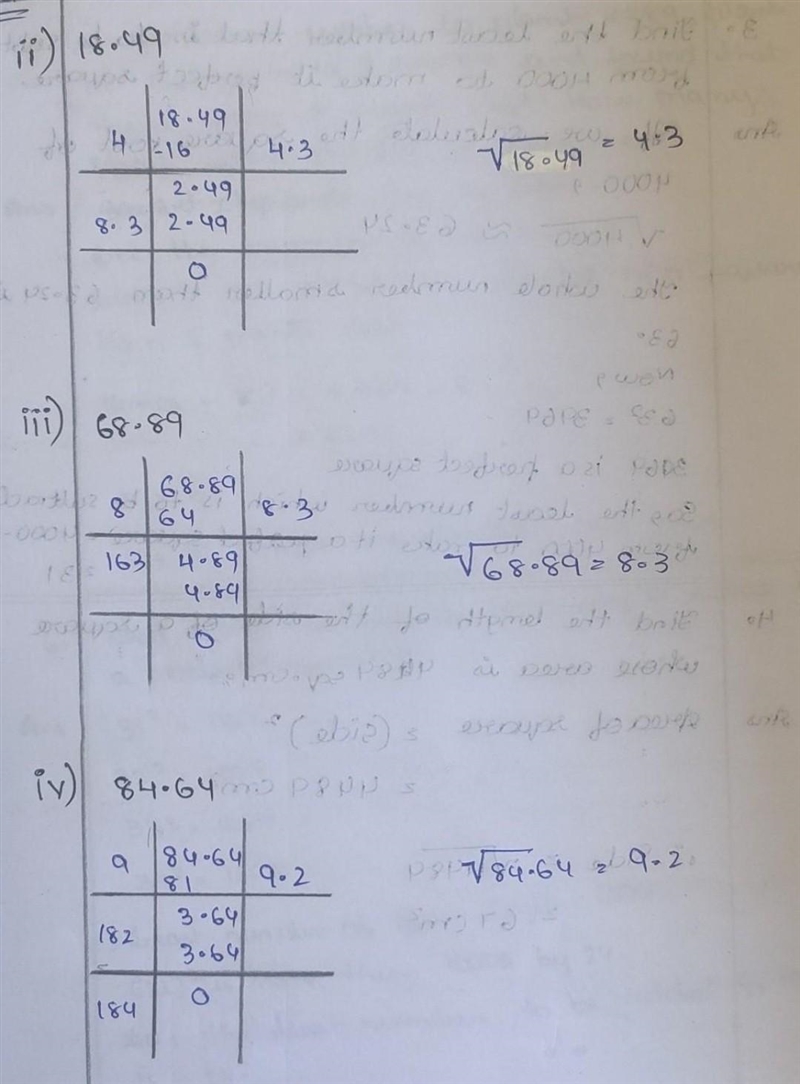 ii) 18.49
18.49
4 -16 4.3 √18.49 = 4.3
2.49
8.3 2.49
0
iii) 68.89
68.89
8 64 8.3
163 4.89 √68.89 = 8.3
4.89
0
iv) 84.64
9 84.64 9.2 √84.64 = 9.2
81
3.64
182 3.64
184 0